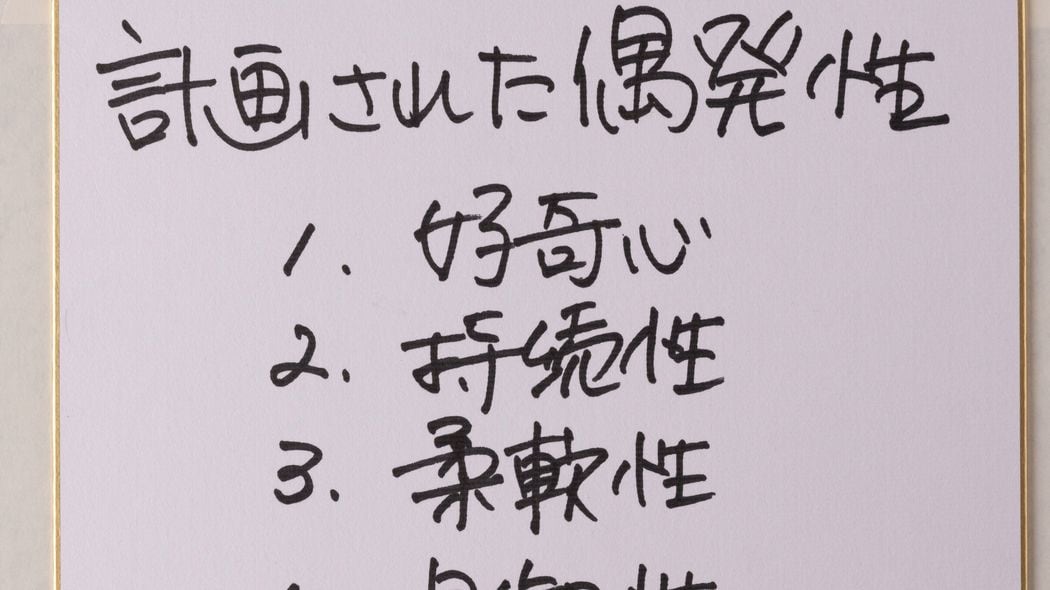 計画された偶発性
1. 好奇心
2. 持続性
3. 柔軟性